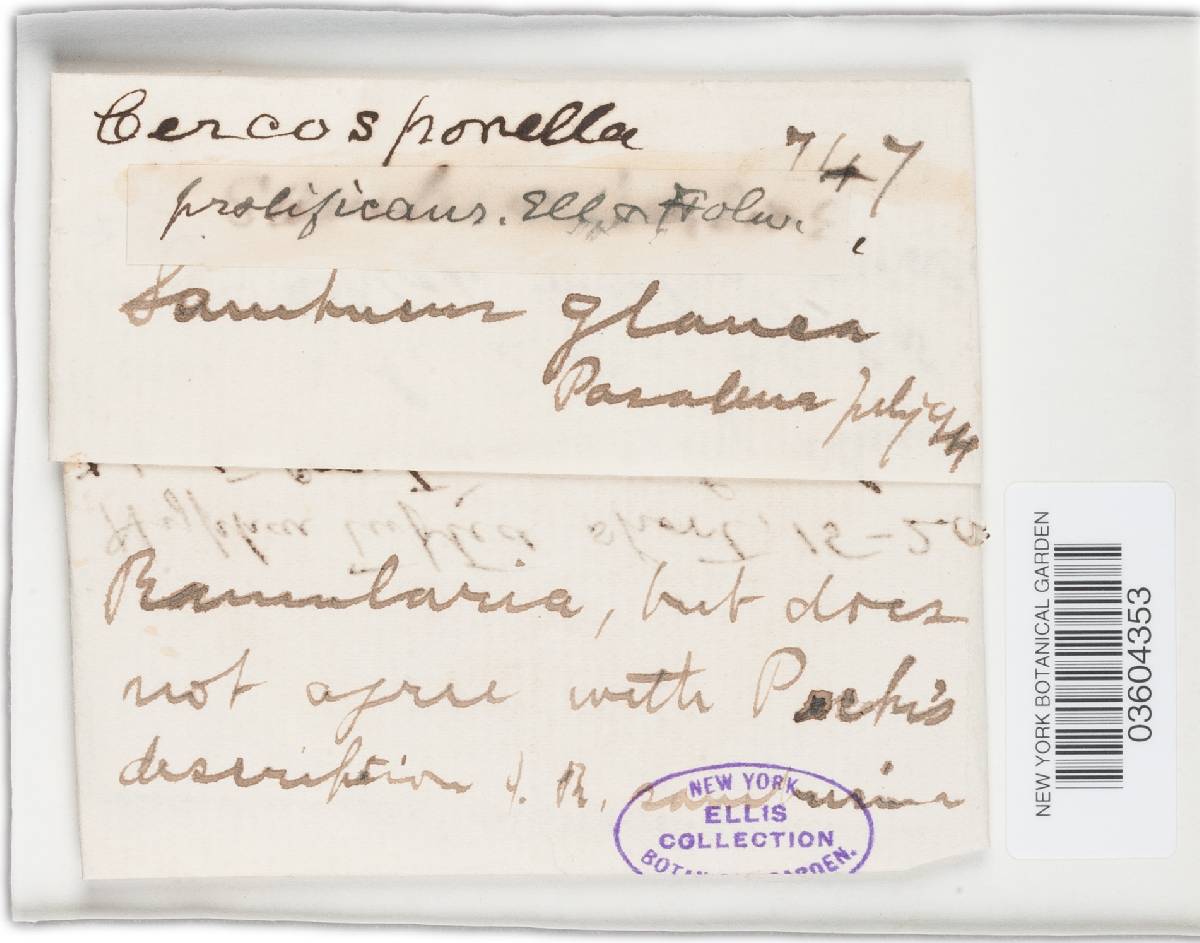 Cercosporella
747
prolificans. Ell. & Holw.
Sambucus glauca
Pasadena July 94
Hyphae tufted short, 15-20
Ramularia, but does
not agree with Peck's
description of R. sambucina
NEW YORK
ELLIS
COLLECTION
BOTANICAL GARDEN.
NEW YORK BOTANICAL GARDEN
03604353